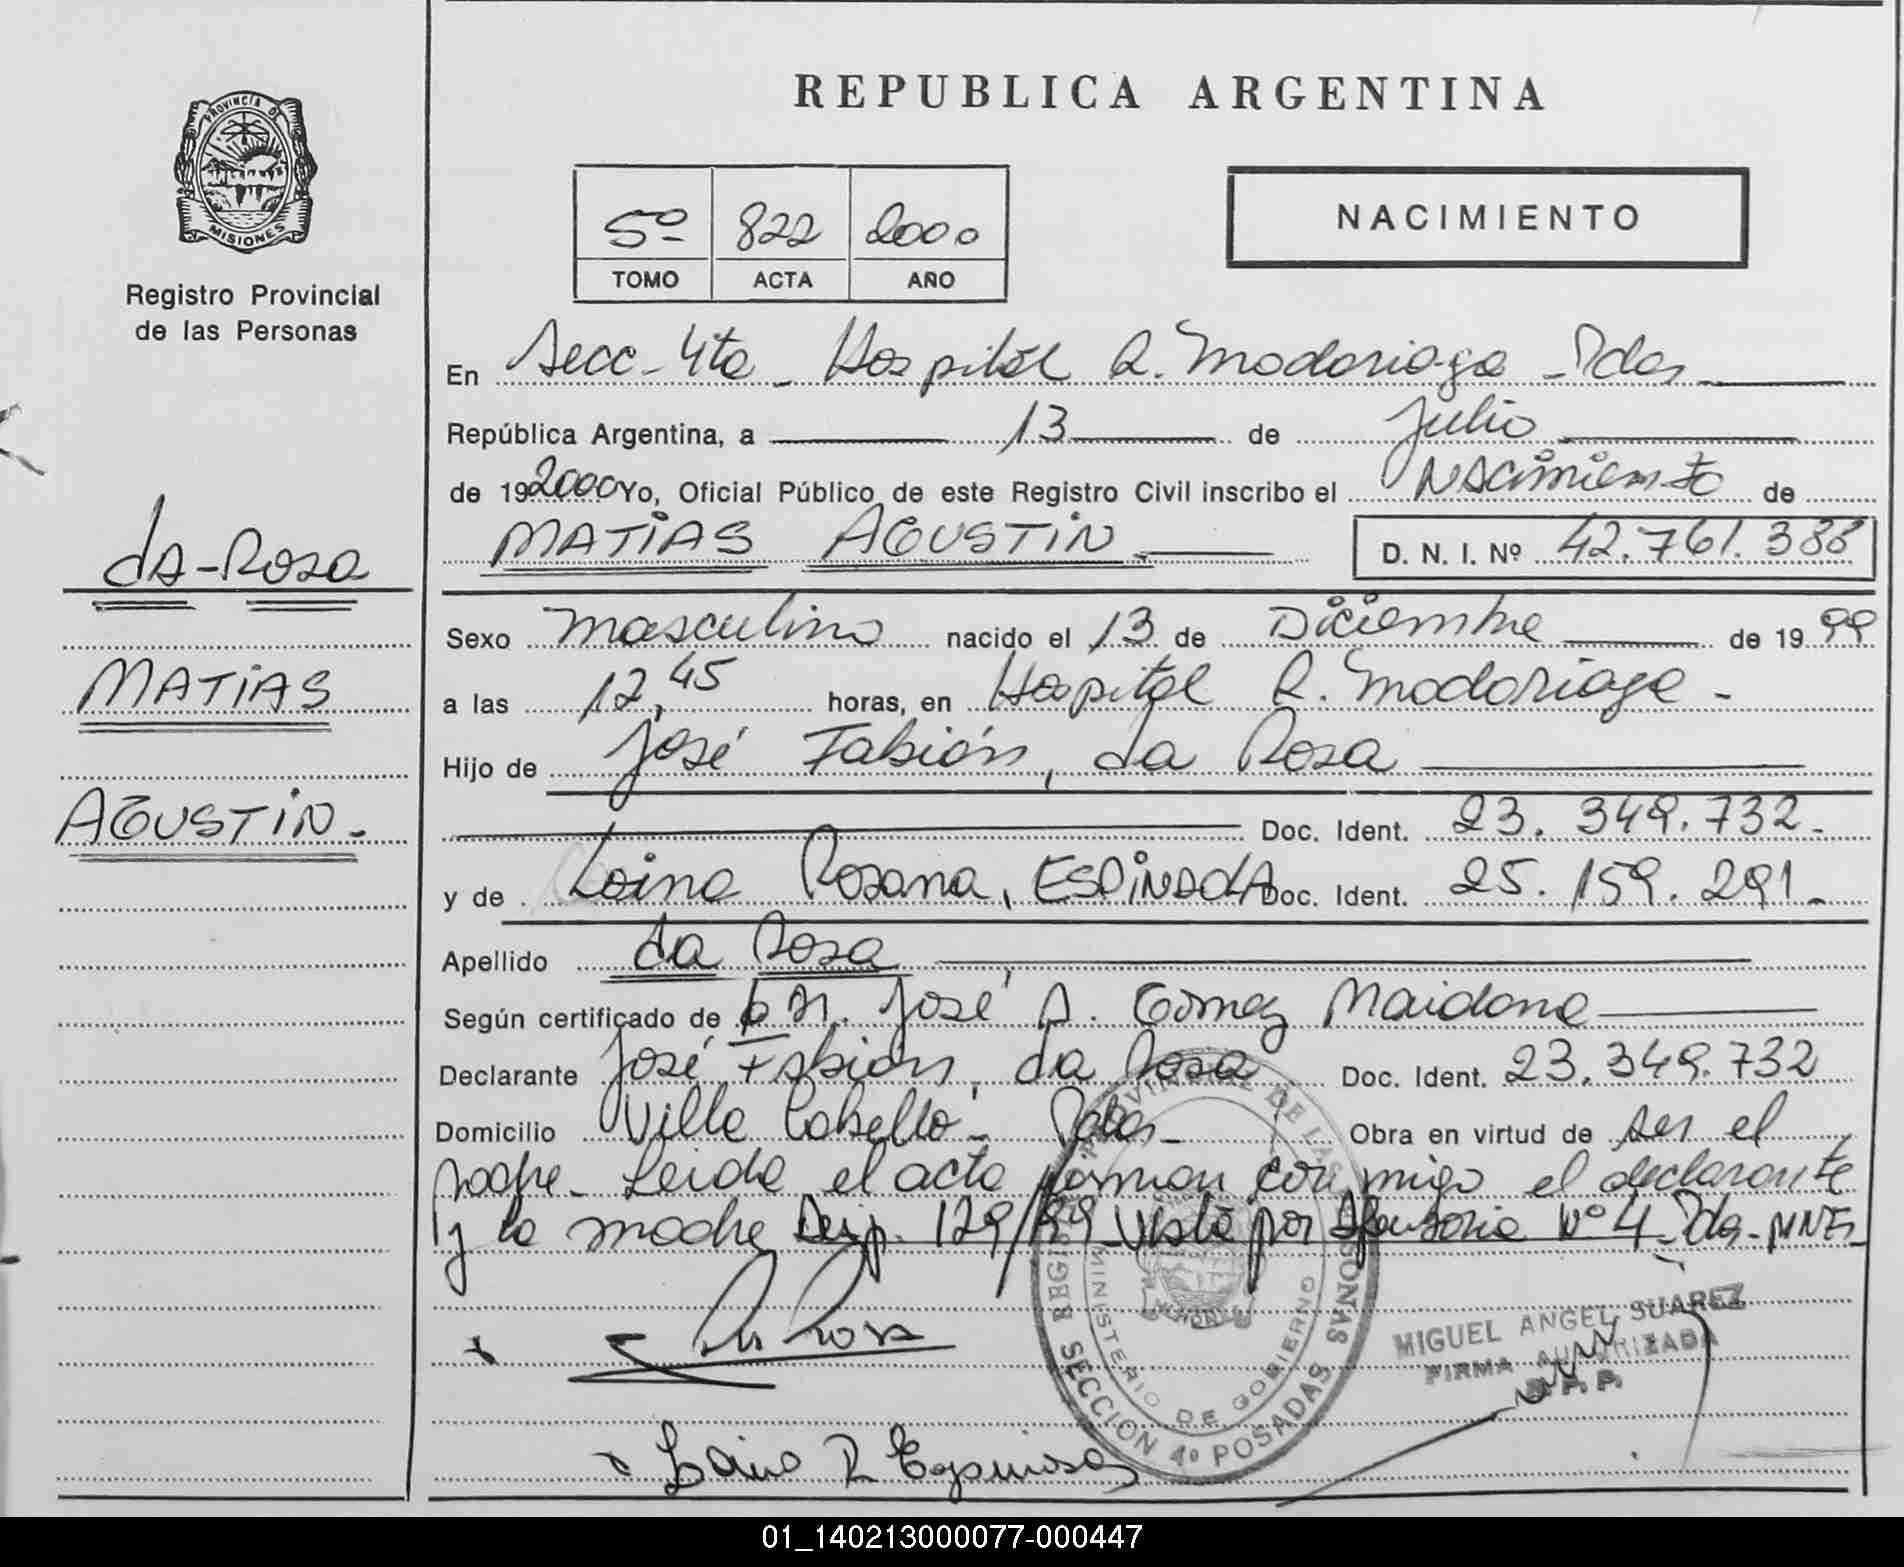 REPUBLICA ARGENTINA
PROVINCIA DE
MISIONES
Registro Provincial
de las Personas
5º 822 2000
TOMO ACTA AÑO
NACIMIENTO
En Secc- 4ta - Hospital R. Madariaga - Pdas
República Argentina, a 13 de Julio
de 192000 Yo, Oficial Público de este Registro Civil inscribo el Nacimiento de
MATIAS AGUSTIN D. N. I. Nº 42.761.388
da-Rosa
MATIAS
AGUSTIN.-
Sexo masculino nacido el 13 de Diciembre de 1999
a las 12,45 horas, en Hospital R. Madariaga -
Hijo de José Fabián, da Rosa
Doc. Ident. 23.349.732.-
y de Rosana, Doc. Ident. 25.159.291.-
Apellido da Rosa
Según certificado de José A. Gomez Maidana
Declarante José Fabián, da Rosa Doc. Ident. 23.349.732
Domicilio Villa Cabello - Pdas - Obra en virtud de ser el
padre - Leida el acta firman conmigo el declarante
y la madre Disp. 129/99 Vista por Nº 4 - Pdas - MNES -
da Rosa
R Espinosa
REGISTRO PROVINCIAL DE LAS PERSONAS
MINISTERIO DE GOBIERNO
SECCION 4º POSADAS
MIGUEL ANGEL SUAREZ
FIRMA AUTORIZADA
01_140213000077-000447